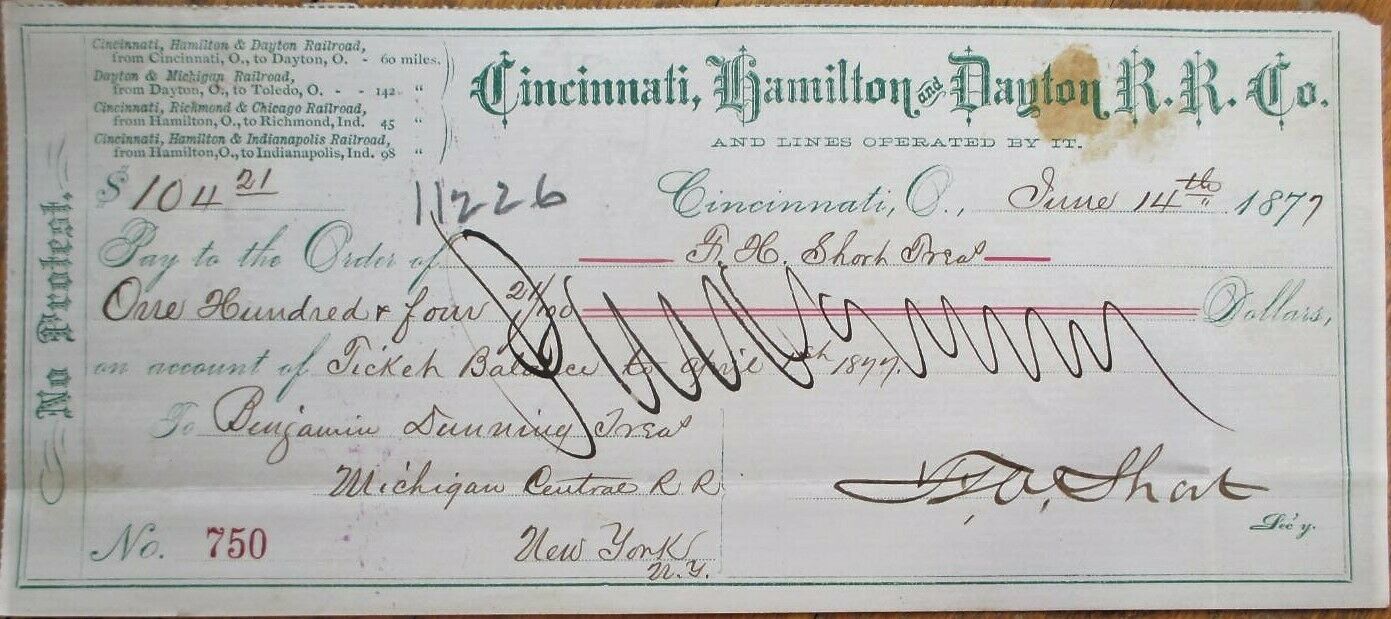 Cincinnati, Hamilton & Dayton Railroad,
from Cincinnati, O., to Dayton, O. - 60 miles.
Dayton & Michigan Railroad,
from Dayton, O., to Toledo, O. - - 142 "
Cincinnati, Richmond & Chicago Railroad,
from Hamilton, O., to Richmond, Ind. 45 "
Cincinnati, Hamilton & Indianapolis Railroad,
from Hamilton, O., to Indianapolis, Ind. 98 "
Cincinnati, Hamilton and Dayton R. R. Co.
AND LINES OPERATED BY IT.
No Protest.
$ 104 21
11226
Cincinnati, O., June 14th 1877
Pay to the Order of F. H. Short Treas
One Hundred & four 21/100 Dollars,
on account of Ticket Balance to April 1877.
To Benjamin Dunning Treas
Michigan Central R R
F. H. Short
Sec'y.
No. 750
New York
N.Y.